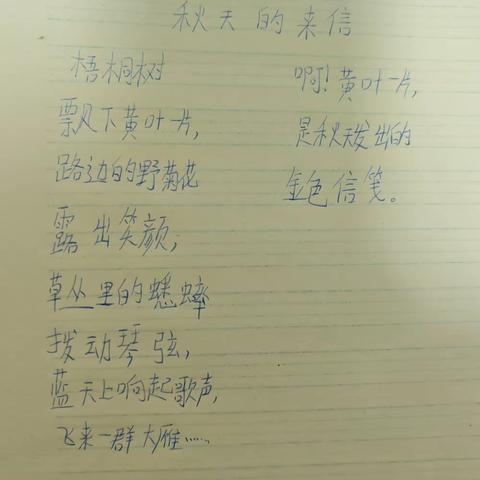 秋天的来信
梧桐树
飘下黄叶一片，
路边的野菊花
露出笑颜；
草丛里的蟋蟀
拨动琴弦，
蓝天上响起歌声，
飞来一群大雁……
啊！黄叶一片，
是秋天发出的
金色信笺。